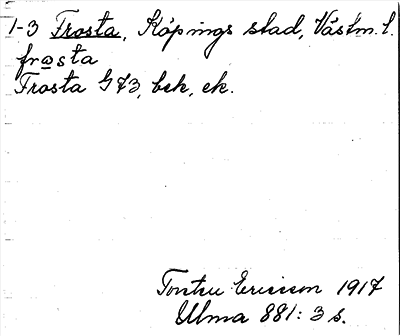 1-3 Frosta, Köpings stad, Västm. l.
frωsta
Frosta G73, bek, ek.
Torsten Ericsson 1917
Ulma 881: 3 s.